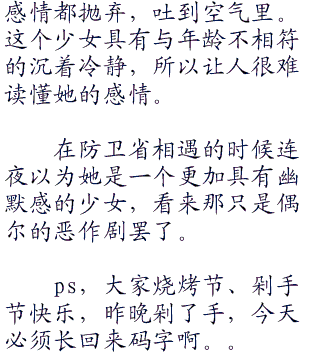 感情都抛弃，吐到空气里。
这个少女具有与年龄不相符
的沉着冷静，所以让人很难
读懂她的感情。
在防卫省相遇的时候连
夜以为她是一个更加具有幽
默感的少女，看来那只是偶
尔的恶作剧罢了。
ps，大家烧烤节、剁手
节快乐，昨晚剁了手，今天
必须长回来码字啊。。